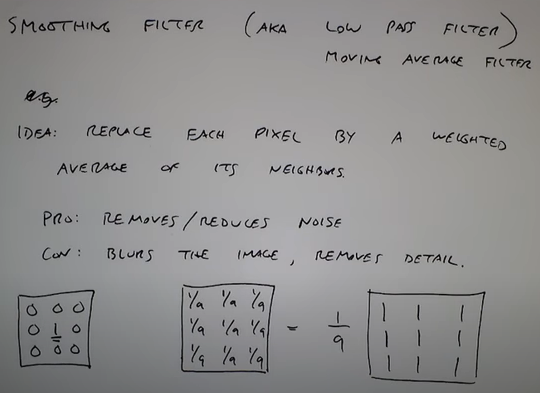 SMOOTHING FILTER (AKA LOW PASS FILTER)
MOVING AVERAGE FILTER
e.g.
IDEA: REPLACE EACH PIXEL BY A WEIGHTED
AVERAGE OF ITS NEIGHBORS.
PRO: REMOVES/REDUCES NOISE
CON: BLURS THE IMAGE, REMOVES DETAIL.
0 0 0 1/9 1/9 1/9 1 1 1
0 1 0 1/9 1/9 1/9 = 1/9 1 1 1
0 0 0 1/9 1/9 1/9 1 1 1